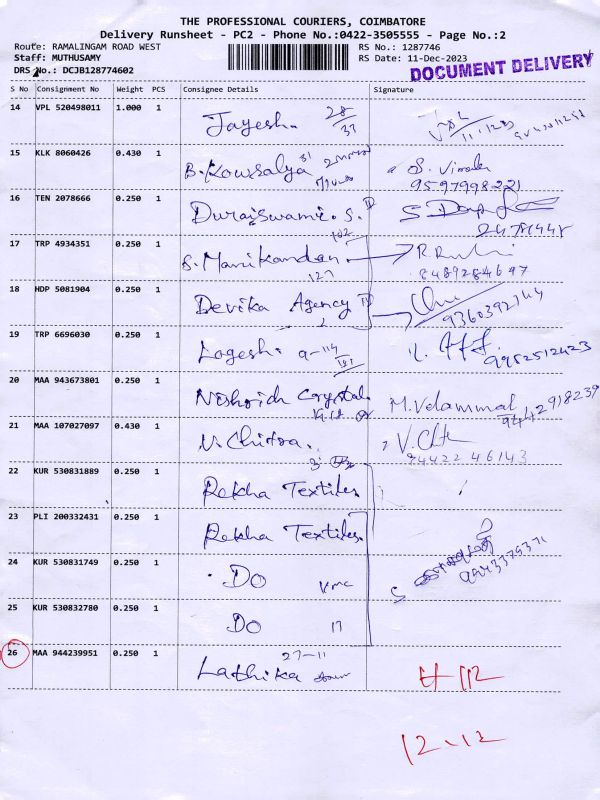 THE PROFESSIONAL COURIERS, COIMBATORE
Delivery Runsheet - PC2 - Phone No.:0422-3505555 - Page No.:2
Route: RAMALINGAM ROAD WEST RS No.: 1287746
Staff: MUTHUSAMY RS Date: 11-Dec-2023
DRS No.: DCJB128774602 DOCUMENT DELIVERY
S No Consignment No Weight PCS Consignee Details Signature
14 VPL 520498011 1.000 1 Jayesh. 28/33
15 KLK 8060426 0.430 1 B. Kowsalya S. Vimala
9597998221
16 TEN 2078666 0.250 1 Duraiswami. S.
24781448
17 TRP 4934351 0.250 1 S. Manikandan
127 8489284697
18 HDP 5081904 0.250 1 Devika Agency
9360392744
19 TRP 6696030 0.250 1 Logesh. 9-114
9952512423
20 MAA 943673801 0.250 1 Crystal M. Velammal
9442918239
21 MAA 107027097 0.430 1 V. Chitra.
94422 46143
22 KUR 530831889 0.250 1 Rekha Textiles
23 PLI 200332431 0.250 1 Rekha Textiles.
24 KUR 530831749 0.250 1 Do KMC
9943379371
25 KUR 530832780 0.250 1 Do 17
27-11
26 MAA 944239951 0.250 1 Lathika
12.12